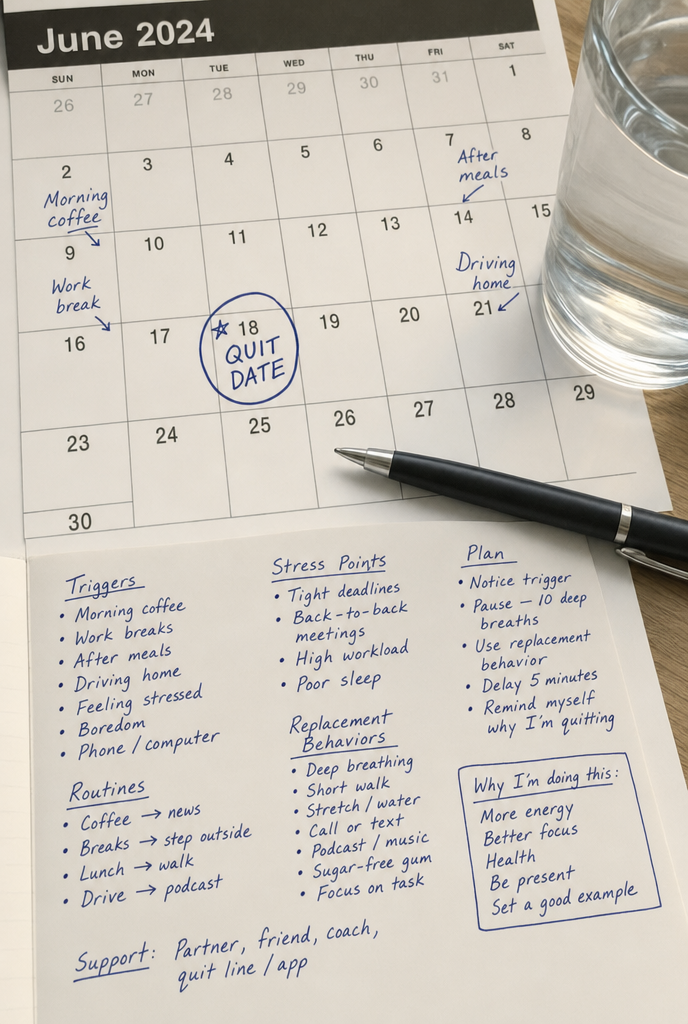 June 2024
SUN MON TUE WED THU FRI SAT
26 27 28 29 30 31 1
2 3 4 5 6 7 8
Morning
coffee
After
meals
9 10 11 12 13 14 15
Work
break
Driving
home
16 17 ☆ 18 19 20 21
QUIT
DATE
23 24 25 26 27 28 29
30
Triggers
• Morning coffee
• Work breaks
• After meals
• Driving home
• Feeling stressed
• Boredom
• Phone / computer
Routines
• Coffee → news
• Breaks → step outside
• Lunch → walk
• Drive → podcast
Stress Points
• Tight deadlines
• Back-to-back
meetings
• High workload
• Poor sleep
Replacement
Behaviors
• Deep breathing
• Short walk
• Stretch / water
• Call or text
• Podcast / music
• Sugar-free gum
• Focus on task
Plan
• Notice trigger
• Pause — 10 deep
breaths
• Use replacement
behavior
• Delay 5 minutes
• Remind myself
why I'm quitting
Why I'm doing this:
More energy
Better focus
Health
Be present
Set a good example
Support: Partner, friend, coach,
quit line / app